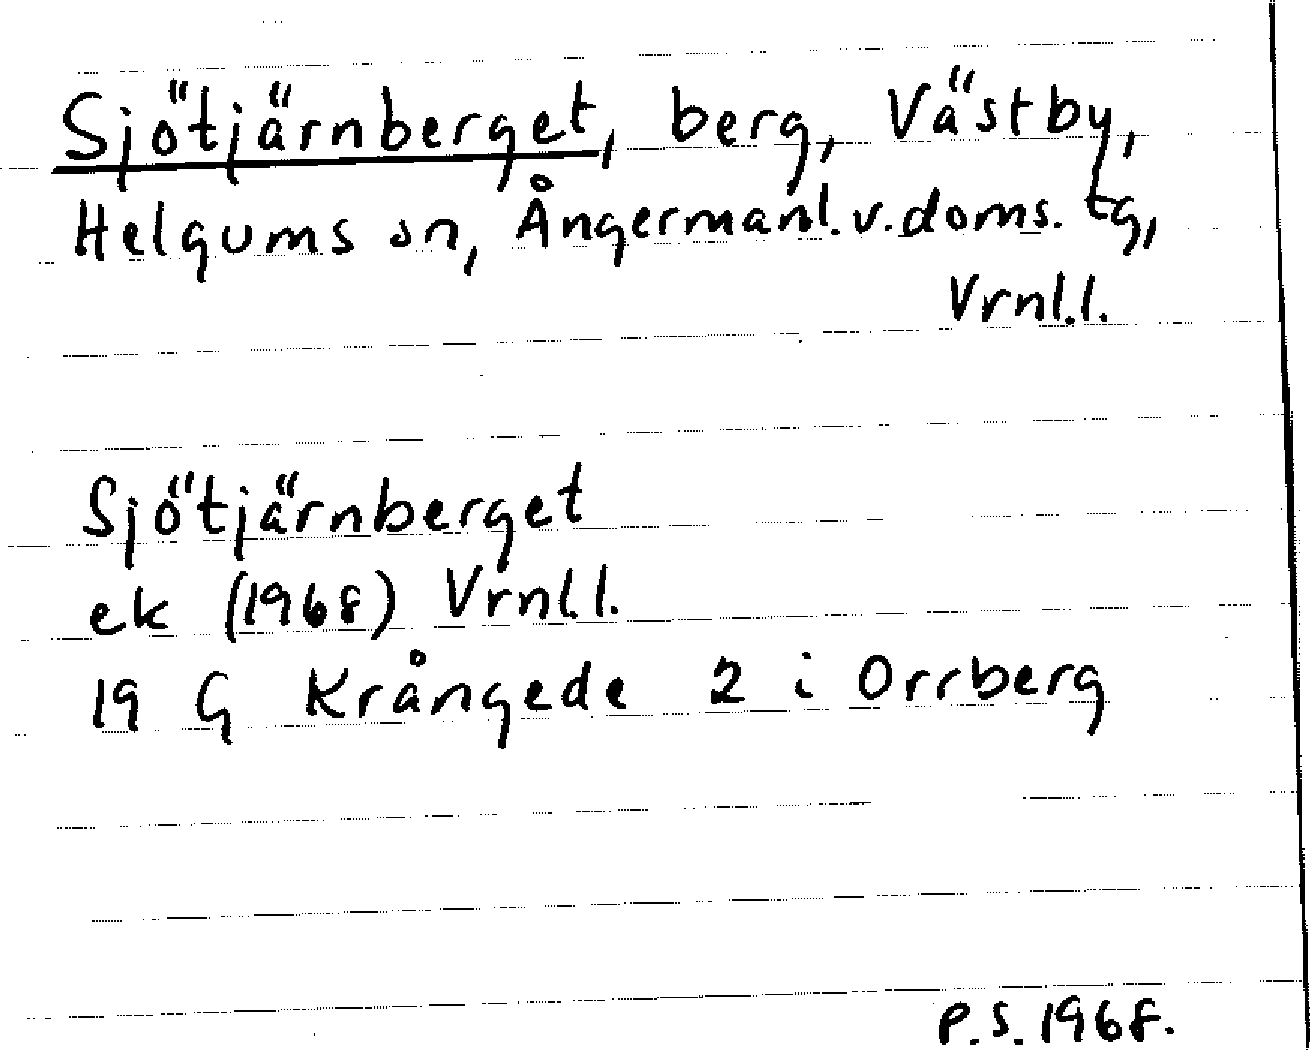 Sjötjärnberget, berg, Västby,
Helgums sn, Ångermanl. v. doms. tg,
Vrnl.l.
Sjötjärnberget
ek (1968) Vrnl.l.
19 G Krångede 2 i Orrberg
P.S. 1968.